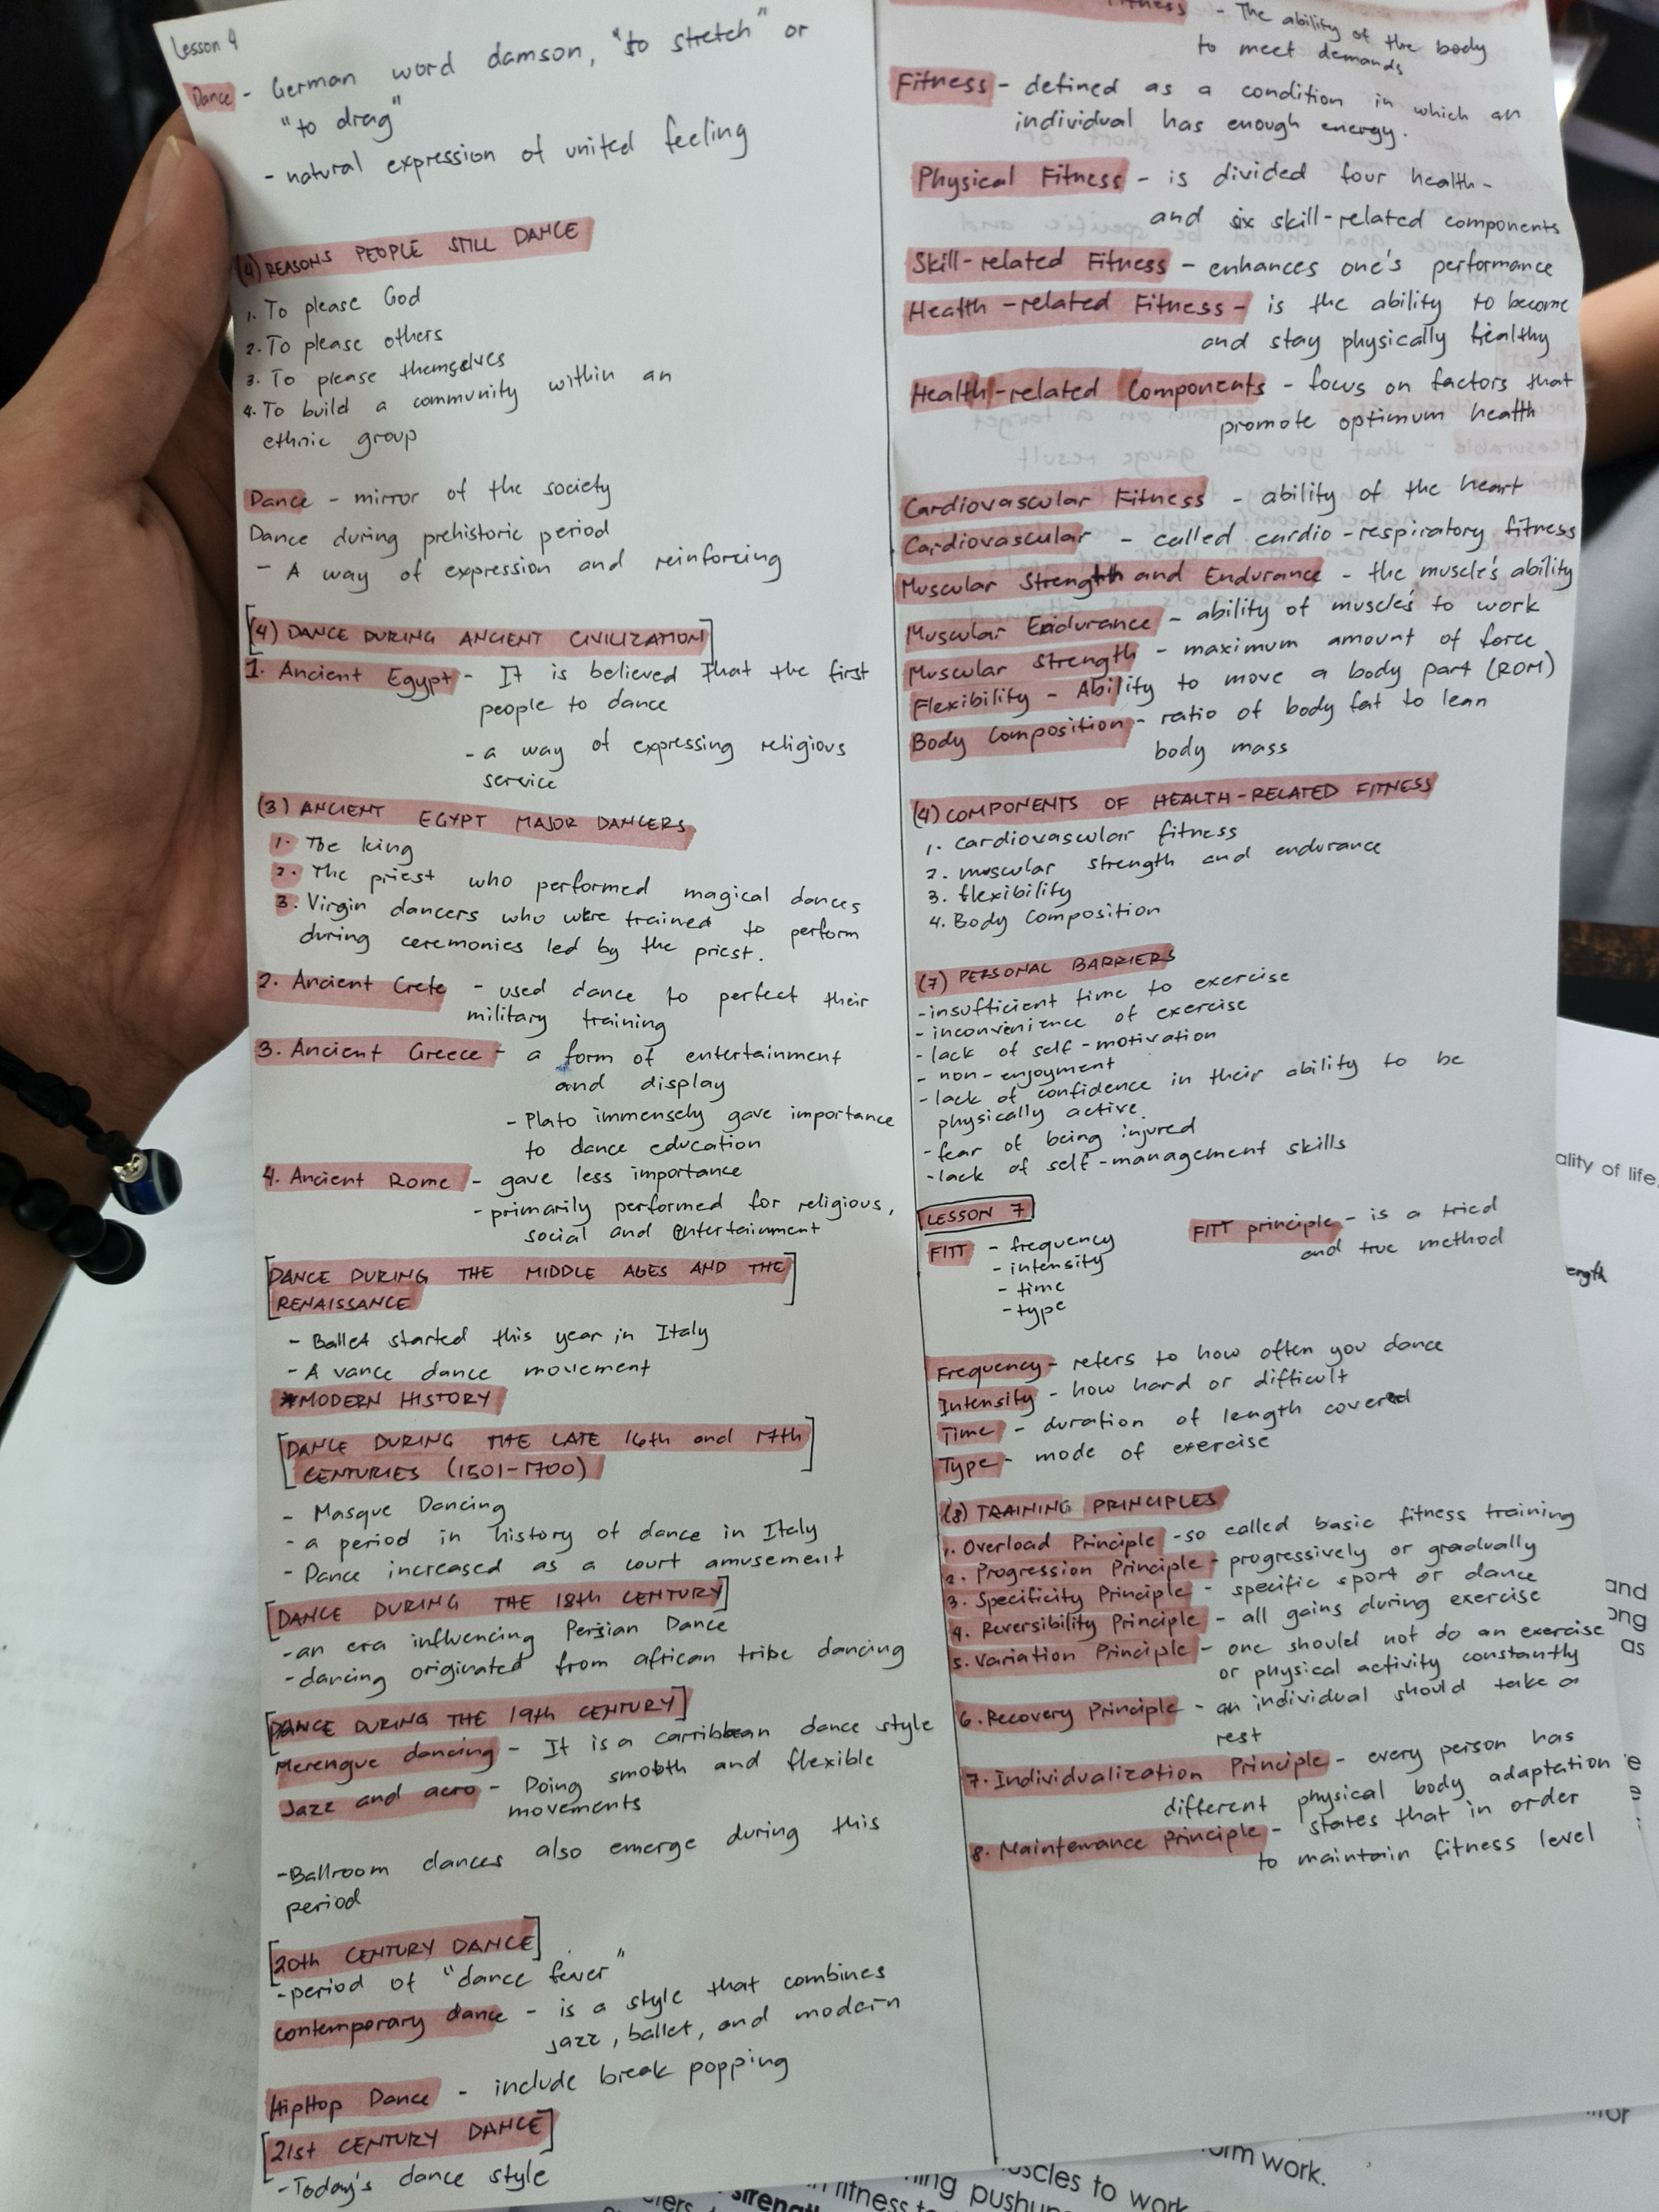 Lesson 4
Dance - German word damson, "to stretch" or
"to drag"
- natural expression of united feeling
(4) REASONS PEOPLE STILL DANCE
1. To please God
2. To please others
3. To please themselves
4. To build a community within an
ethnic group
Dance - mirror of the society
Dance during prehistoric period
- A way of expression and reinforcing
[(4) DANCE DURING ANCIENT CIVILIZATION]
1. Ancient Egypt - It is believed that the first
people to dance
- a way of expressing religious
service
(3) ANCIENT EGYPT MAJOR DANCERS
1. The king
2. The priest who performed magical dances
3. Virgin dancers who were trained to perform
during ceremonies led by the priest.
2. Ancient Crete - used dance to perfect their
military training
3. Ancient Greece - a form of entertainment
and display
- Plato immensely gave importance
to dance education
4. Ancient Rome - gave less importance
- primarily performed for religious,
social and entertainment
[DANCE DURING THE MIDDLE AGES AND THE
RENAISSANCE]
- Ballet started this year in Italy
- A vance dance movement
*MODERN HISTORY
[DANCE DURING THE LATE 16th and 17th
CENTURIES (1501-1700)]
- Masque Dancing
- a period in history of dance in Italy
- Dance increased as a court amusement
[DANCE DURING THE 18th CENTURY]
- an era influencing Persian Dance
- dancing originated from african tribe dancing
[DANCE DURING THE 19th CENTURY]
Merengue dancing - It is a carribbean dance style
Jazz and acro - Doing smooth and flexible
movements
- Ballroom dances also emerge during this
period
[20th CENTURY DANCE]
- period of "dance fever"
contemporary dance - is a style that combines
jazz, ballet, and modern
HipHop Dance - include break popping
[21st CENTURY DANCE]
- Today's dance style
Fitness - The ability of the body
to meet demands
Fitness - defined as a condition in which an
individual has enough energy.
Physical Fitness - is divided four health-
and six skill-related components
Skill-related Fitness - enhances one's performance
Health-related Fitness - is the ability to become
and stay physically healthy
Health-related Components - focus on factors that
promote optimum health
Cardiovascular Fitness - ability of the heart
Cardiovascular - called cardio-respiratory fitness
Muscular Strength and Endurance - the muscle's ability
Muscular Endurance - ability of muscle's to work
Muscular Strength - maximum amount of force
Flexibility - Ability to move a body part (ROM)
Body Composition - ratio of body fat to lean
body mass
(4) COMPONENTS OF HEALTH-RELATED FITNESS
1. cardiovascular fitness
2. muscular strength and endurance
3. flexibility
4. Body Composition
(7) PERSONAL BARRIERS
- insufficient time to exercise
- inconvenience of exercise
- lack of self-motivation
- non-enjoyment
- lack of confidence in their ability to be
physically active.
- fear of being injured
- lack of self-management skills
LESSON 7
FITT - frequency
- intensity
- time
- type
FITT principle - is a tried
and true method
Frequency - refers to how often you dance
Intensity - how hard or difficult
Time - duration of length covered
Type - mode of exercise
(8) TRAINING PRINCIPLES
1. Overload Principle - so called basic fitness training
2. Progression Principle - progressively or gradually
3. Specificity Principle - specific sport or dance
4. Reversibility Principle - all gains during exercise
5. Variation Principle - one should not do an exercise
or physical activity constantly
6. Recovery Principle - an individual should take a
rest
7. Individualization Principle - every person has
different physical body adaptation
8. Maintenance Principle - states that in order
to maintain fitness level
ality of life.
ength
and
ong
as
orm work.
uscles to work
ning pushup
n fitness to